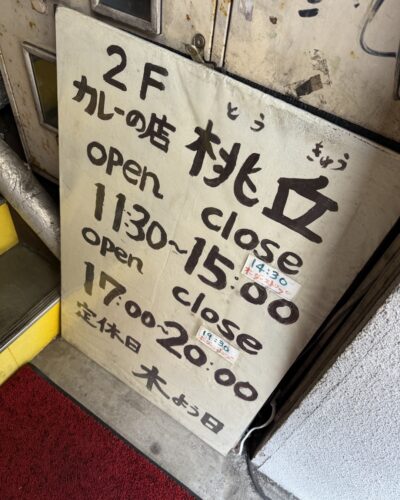 2F
カレーの店
とうきゅう
桃丘
open close
11:30~15:00
14:30
オーダーストップ
open close
17:00~20:00
19:30
定休日
木よう日